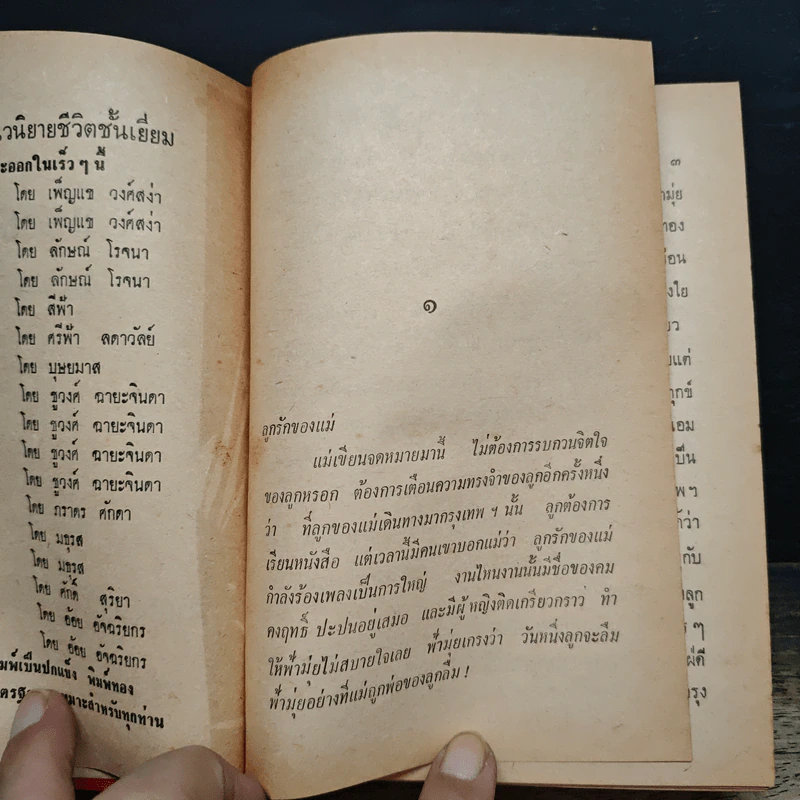 วนิยายชีวิตชั้นเยี่ยม
ะออกในเร็ว ๆ นี้
โดย เพ็ญแข วงศ์สง่า
โดย เพ็ญแข วงศ์สง่า
โดย ลักษณ์ โรจนา
โดย ลักษณ์ โรจนา
โดย สีฟ้า
โดย ศรีฟ้า ลดาวัลย์
โดย บุษยมาส
โดย ชูวงศ์ ฉายะจินดา
โดย ชูวงศ์ ฉายะจินดา
โดย ชูวงศ์ ฉายะจินดา
โดย ชูวงศ์ ฉายะจินดา
โดย ภราดร ศักดา
โดย มธุรส
โดย มธุรส
โดย ศักดิ์ สุริยา
โดย อ้อย อัจฉริยกร
โดย อ้อย อัจฉริยกร
มพ์เป็นปกแข็ง พิมพ์ทอง
หมาะสำหรับทุกท่าน
๑
ลูกรักของแม่
แม่เขียนจดหมายมานี้ ไม่ต้องการรบกวนจิตใจ
ของลูกหรอก ต้องการเตือนความทรงจำของลูกอีกครั้งหนึ่ง
ว่า ที่ลูกของแม่เดินทางมากรุงเทพ ฯ นั้น ลูกต้องการ
เรียนหนังสือ แต่เวลานี้มีคนเขาบอกแม่ว่า ลูกรักของแม่
กำลังร้องเพลงเป็นการใหญ่ งานไหนงานนั้นมีชื่อของคม
คงฤทธิ์ ปะปนอยู่เสมอ และมีผู้หญิงติดเกรียวกราว ทำ
ให้ฟ้ามุ่ยไม่สบายใจเลย ฟ้ามุ่ยเกรงว่า วันหนึ่งลูกจะลืม
ฟ้ามุ่ยอย่างที่แม่ถูกพ่อของลูกลืม !
๓
ามุ่ย
าอง
่อน
งใย
ยว
ยแต่
ทุกข์
เอม
เป็น
พ ฯ
ว่า
กับ
ลูก
ร ๆ
ผู้ดี
รุง